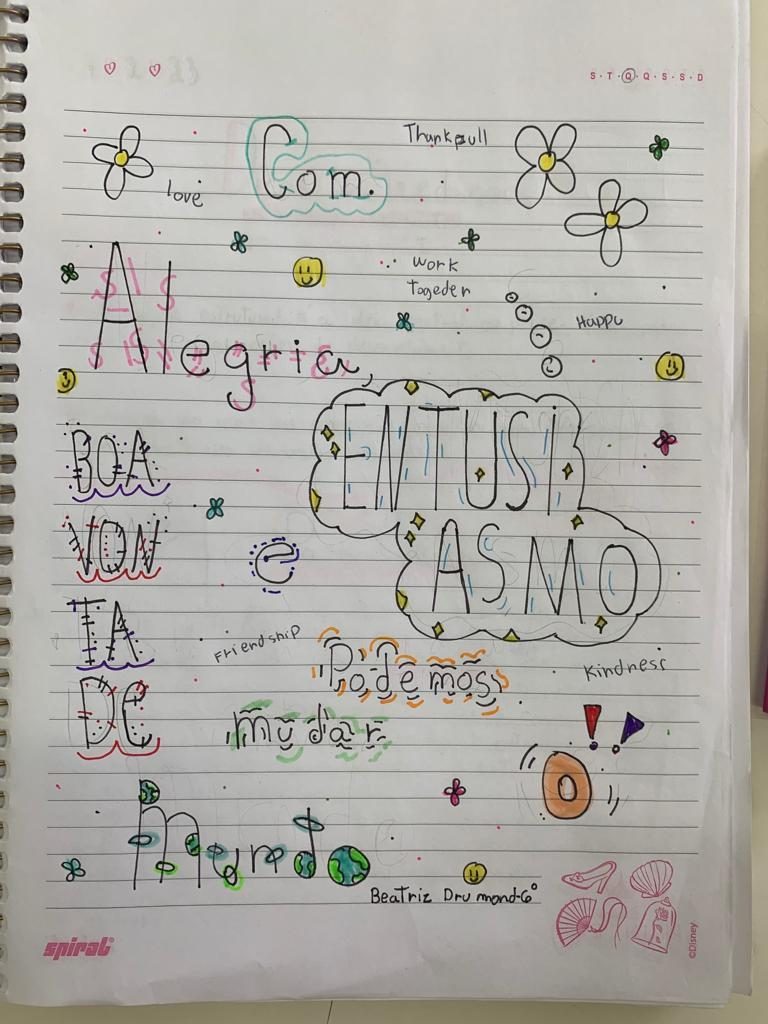 S·T·Q·Q·S·S·D
Thankpull
love
Com.
work
togeder
Happy
Alegria,
ENTUSi
ASMO
BOA
VON
TA
DE
e
Friendship
Podemos
Kindness
mudar
O!!
Mundo
Beatriz Drumond-6°
spiral
©Disney